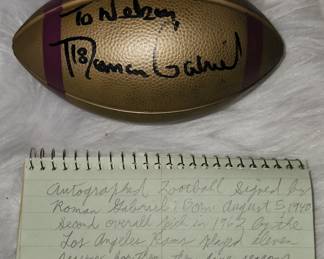 To Nelson,
Roman Gabriel
18
Autographed Football Signed by
Roman Gabriel: Born August 5, 1940
Second overall pick in 1962 by the
Los Angeles Rams played eleven
seasons